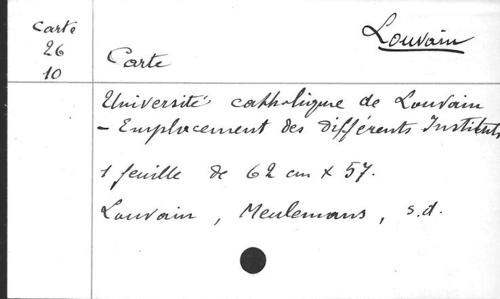 Carte
26
10
Louvain
Carte
Université catholique de Louvain
- Emplacement des différents Instituts
1 feuille de 62 cm x 57.
Louvain, Meulemans, s.d.